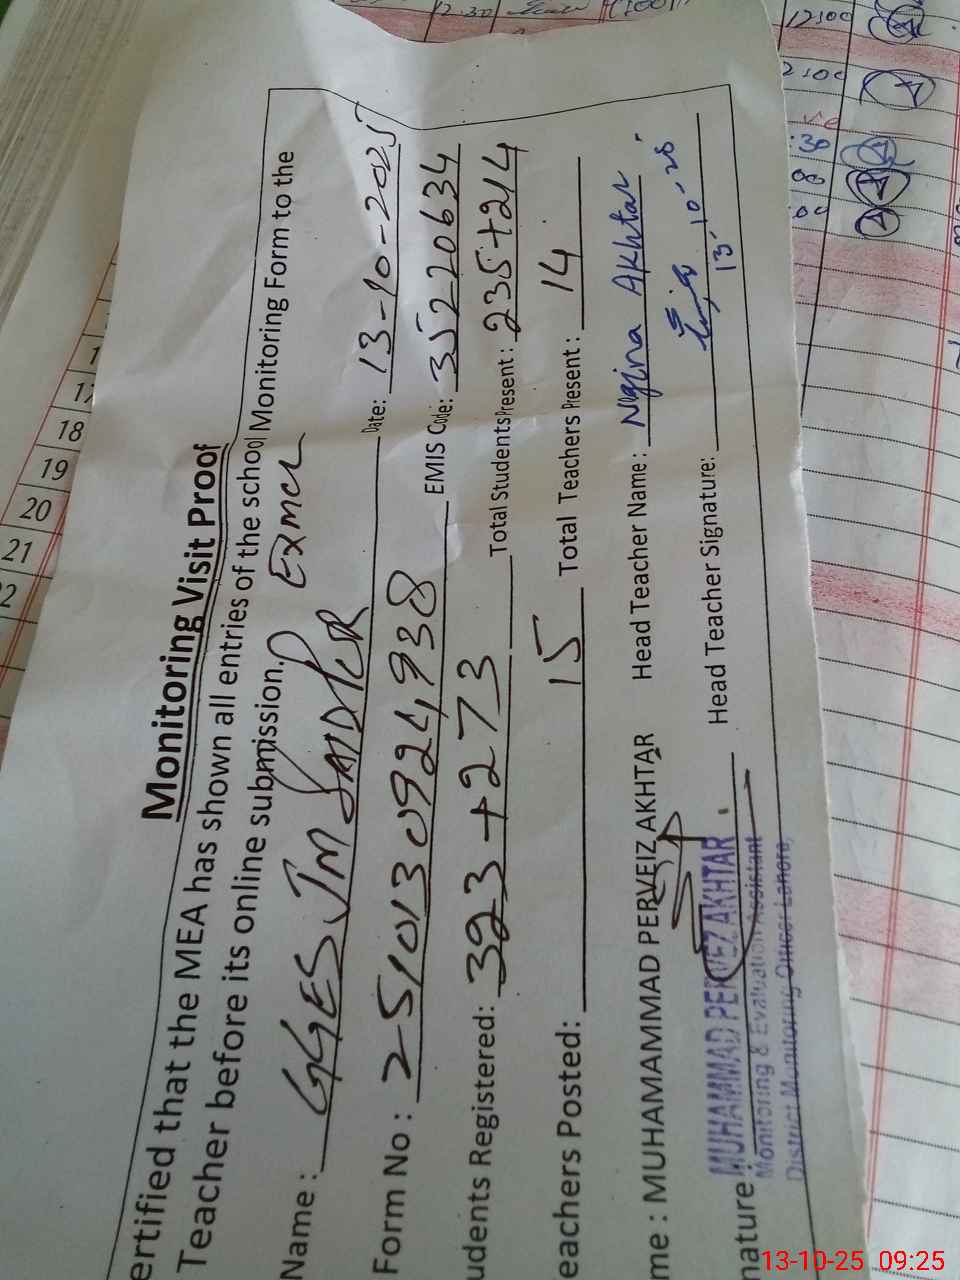 Monitoring Visit Proof
ertified that the MEA has shown all entries of the school Monitoring Form to the
Teacher before its online submission.
Name : GGES JM Date: 13-10-2025
Form No : 2510130924938 EMIS Code: 35220634
udents Registered: 323+273 Total Students Present: 235+214
eachers Posted: 15 Total Teachers Present: 14
me : MUHAMAMMAD PERVEIZ AKHTAR Head Teacher Name: Nagina Akhtar
nature Head Teacher Signature: 13-10-25
MUHAMMAD PERVEZ AKHTAR
Monitoring & Evaluation Assistant
District Monitoring Officer Lahore,
17
18
19
20
21
22
12:30
12:00
13-10-25 09:25